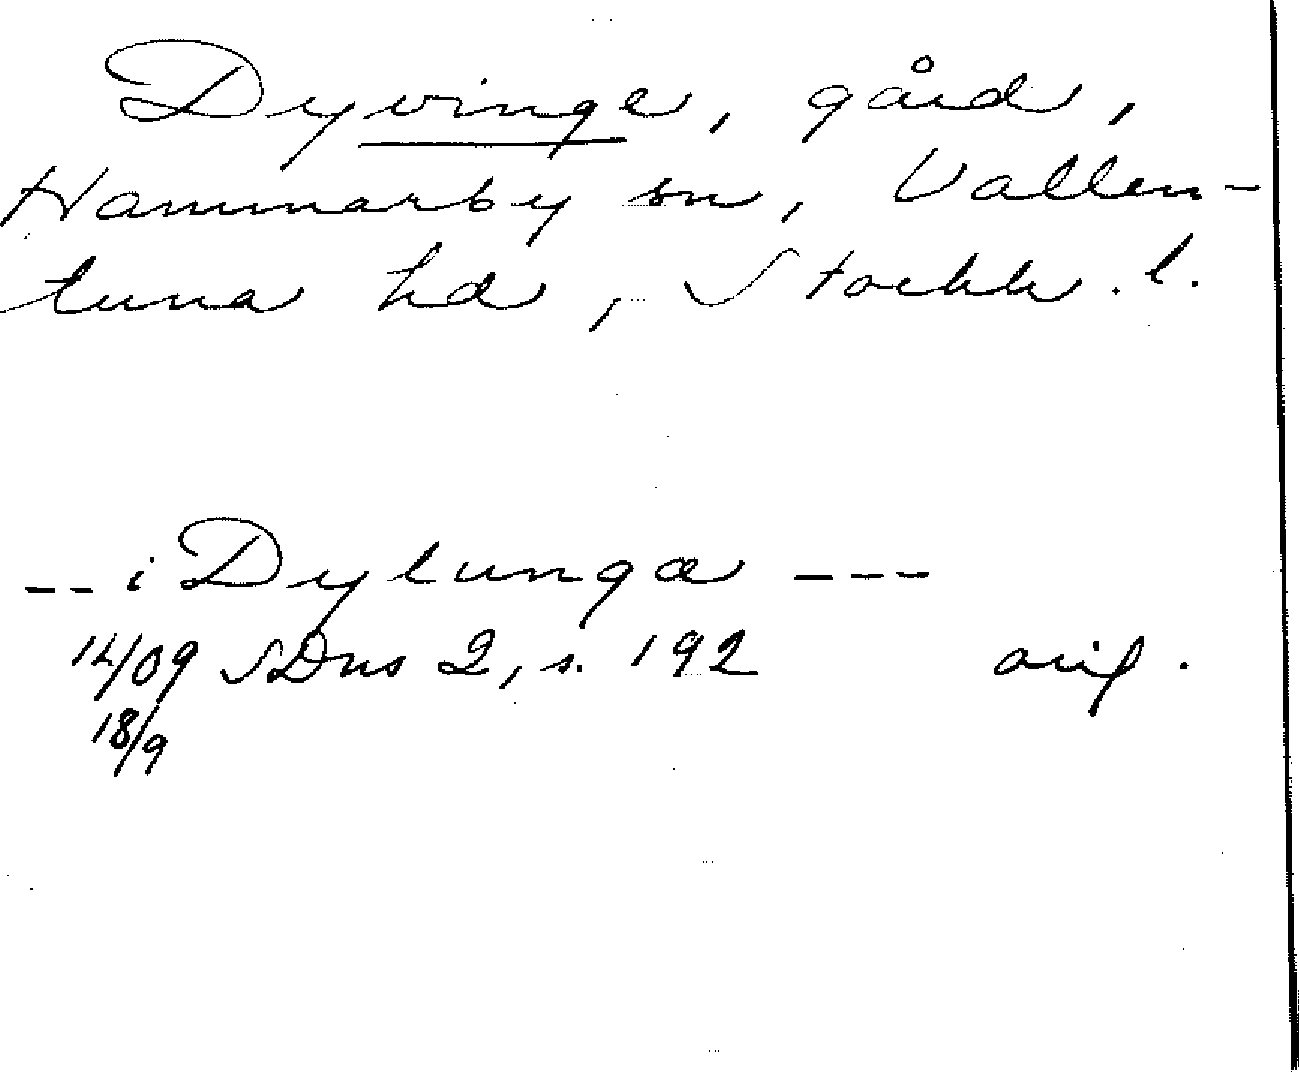 Dyvinge, gård,
Hammarby sn, Vallen-
tuna hd, Stockh. l.
-- i Dylunga ---
14/09 SDns 2, s. 192 orig.
18/9